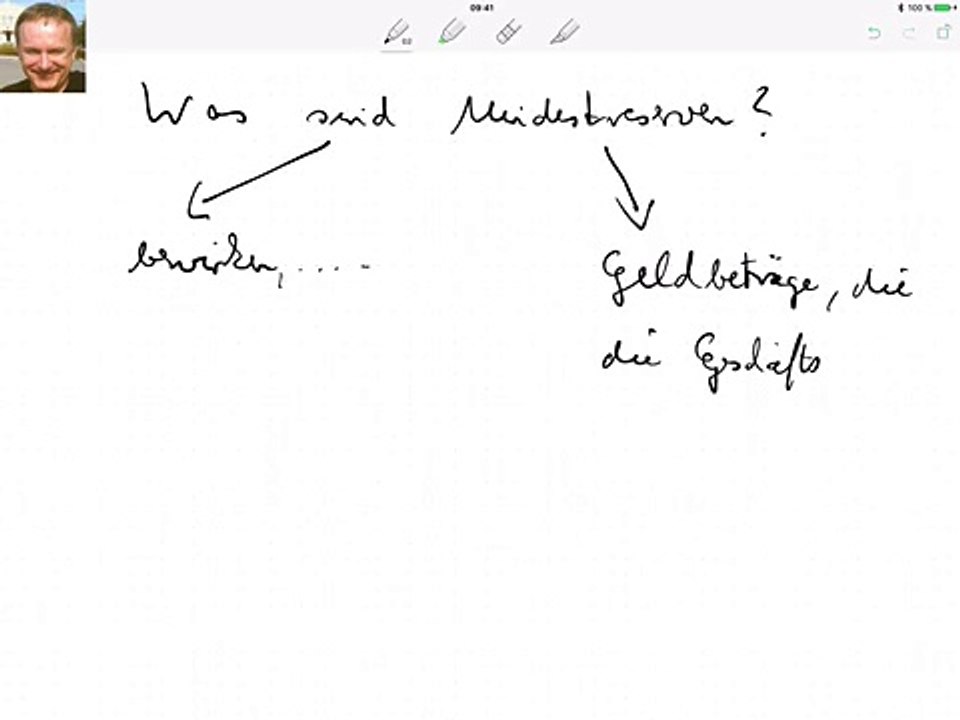 09:41
100 %
02
Was sind Mindestreserven?
bewirken, .....
Geldbeträge, die
die Geschäfts